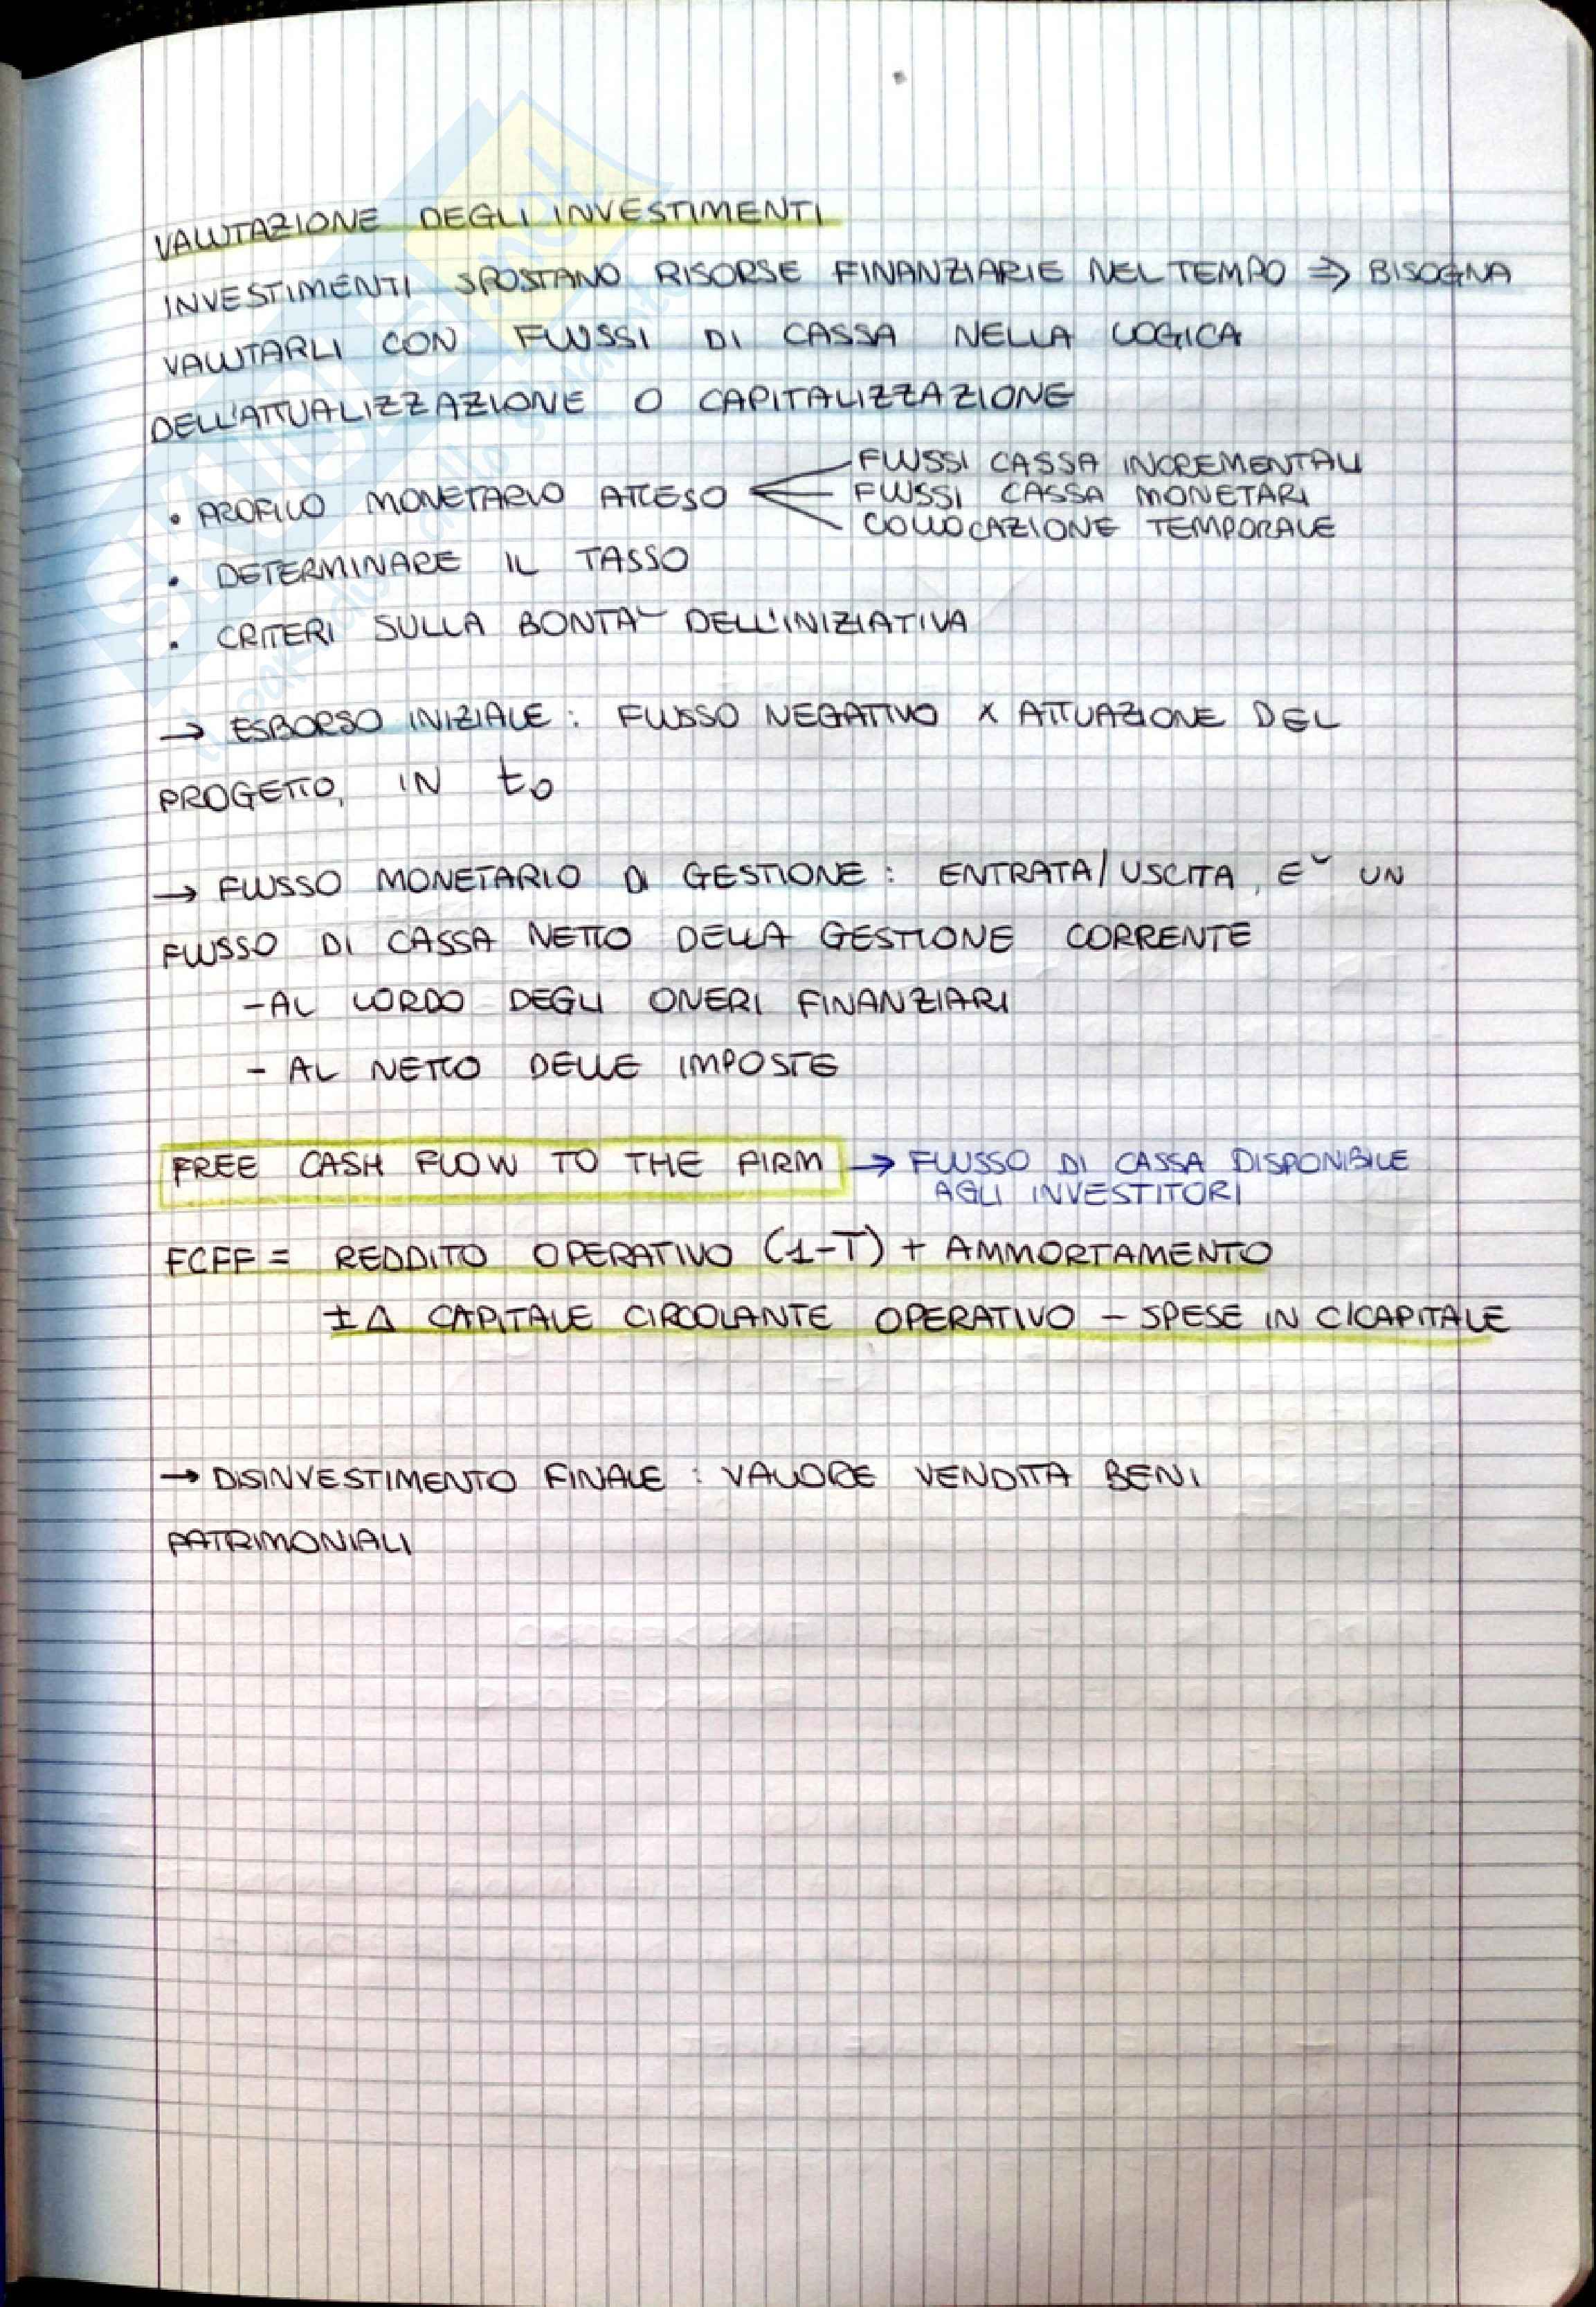 VALUTAZIONE DEGLI INVESTIMENTI
INVESTIMENTI SPOSTANO RISORSE FINANZIARIE NEL TEMPO => BISOGNA
VALUTARLI CON FLUSSI DI CASSA NELLA LOGICA
DELL'ATTUALIZZAZIONE O CAPITALIZZAZIONE
• PROFILO MONETARIO ATTESO
FLUSSI CASSA INCREMENTALI
FLUSSI CASSA MONETARI
COLLOCAZIONE TEMPORALE
• DETERMINARE IL TASSO
• CRITERI SULLA BONTA` DELL'INIZIATIVA
→ ESBORSO INIZIALE : FLUSSO NEGATIVO X ATTUAZIONE DEL
PROGETTO, IN t₀
→ FLUSSO MONETARIO DI GESTIONE : ENTRATA/USCITA, E` UN
FLUSSO DI CASSA NETTO DELLA GESTIONE CORRENTE
- AL LORDO DEGLI ONERI FINANZIARI
- AL NETTO DELLE IMPOSTE
FREE CASH FLOW TO THE FIRM → FLUSSO DI CASSA DISPONIBILE
AGLI INVESTITORI
FCFF = REDDITO OPERATIVO (1-T) + AMMORTAMENTO
± Δ CAPITALE CIRCOLANTE OPERATIVO - SPESE IN C/CAPITALE
→ DISINVESTIMENTO FINALE : VALORE VENDITA BENI
PATRIMONIALI